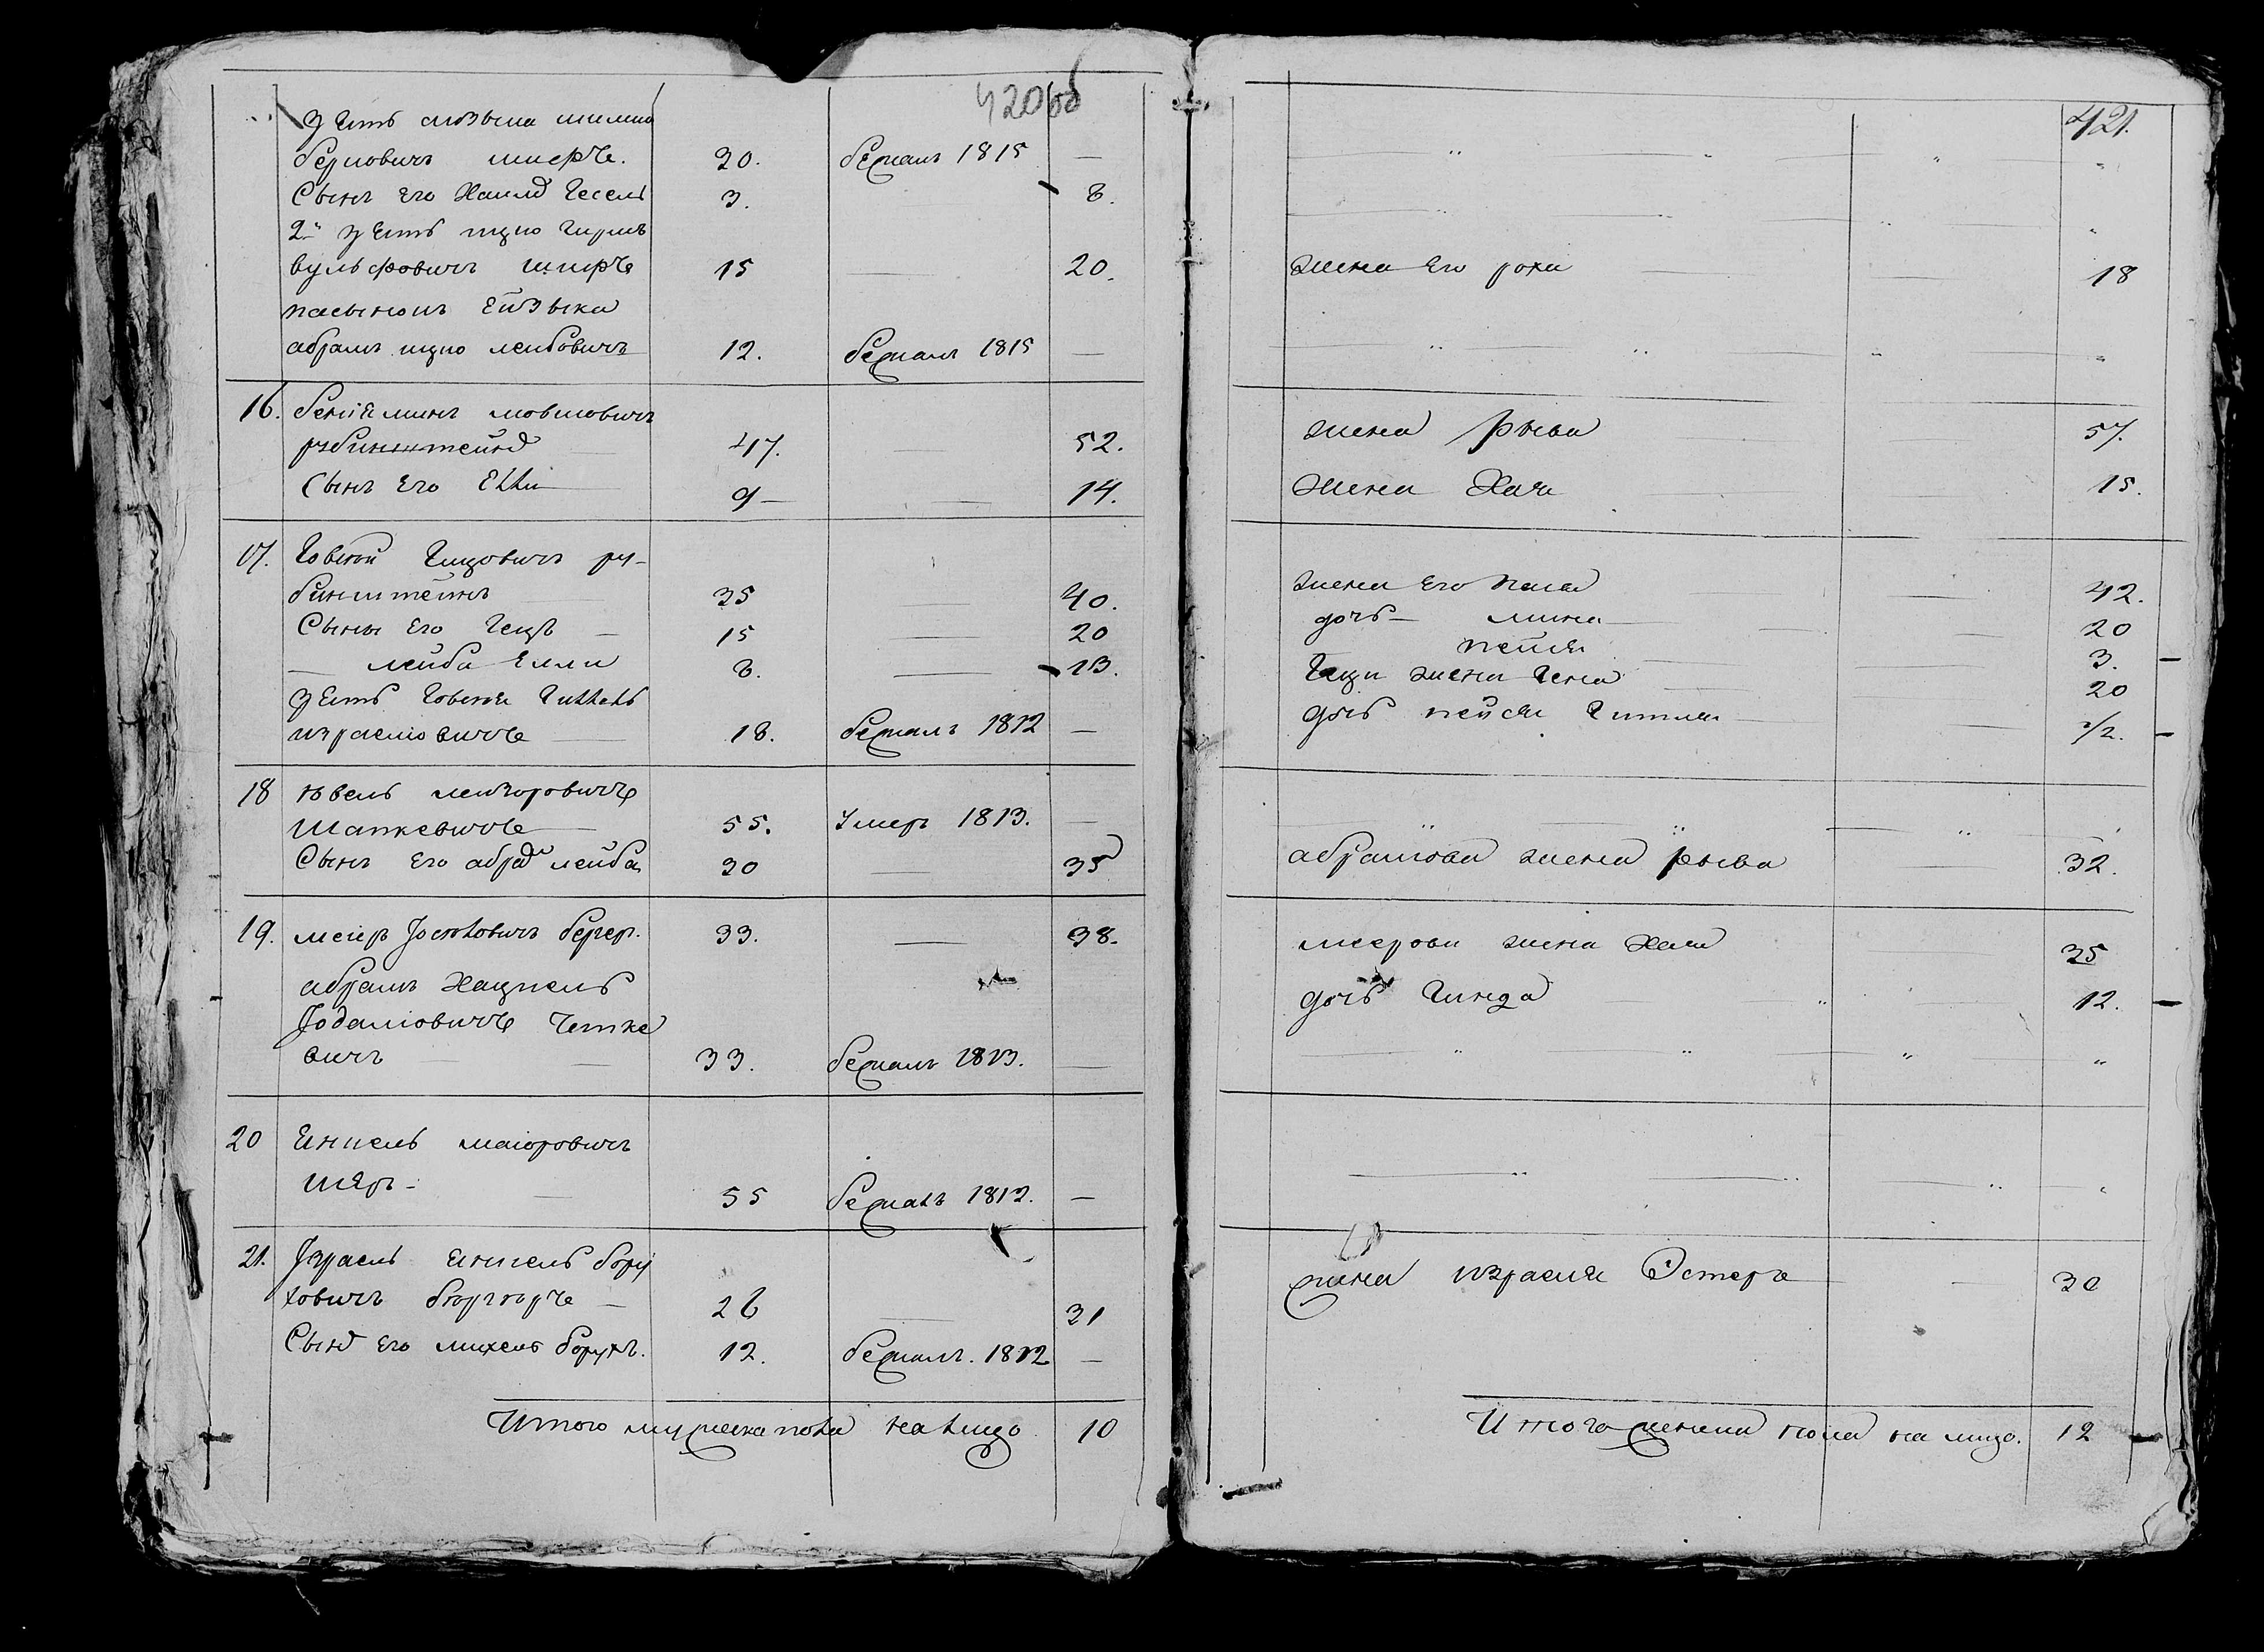 420об
зять
берковичъ 20. бежалъ 1815 —
Сынъ его Хаимъ Гесель 3. 8.
2й зять ицко Гирша
вульфовичъ 15 — 20.
пасынокъ Ейзыка
абрамъ ицко лейбовичъ 12. бежалъ 1815 —
16. бениеминъ мовшовичъ
рубинштейнъ 47. — 52.
Сынъ его Елли 9 — 14.
17. Говсей Гицовичъ ру-
бинштейнъ 35 — 40.
Сыны его Гецъ — 15 — 20
— лейба Елли 8. — 13.
зять Говсея Гиллель
израелiовичъ 18. бежалъ 1812 —
18 ювель лейзоровичъ
Шапкевичъ 55. Умеръ 1813. —
Сынъ его абрамъ лейба 30 — 35
19. меiеръ Iосюловичъ бергер. 33. — 38.
абрамъ Хацкель
Iоделiовичъ Чепке
вичъ 33. бежалъ 1813. —
20 Енкель маiоровичъ
Шеръ — 55 бежалъ 1812. —
21. Iзраель Енкель бору
ховичъ — 26 — 31
Сынъ его михель борухъ. 12. бежалъ. 1812 —
Итого мужеска пола на лицо 10
421.
жена его рохля 18
жена Рыва 57.
жена Хая 15.
жена его 42.
дочь — мина 20
пейся 3.
Геци жена Гена 20
дочь пейся Гитля 1/2.
абрамова жена рыва 32.
меерова жена Хая 35
дочь Гинда 12.
жена израеля Эстеръ 30
Итого женска пола на лицо. 12